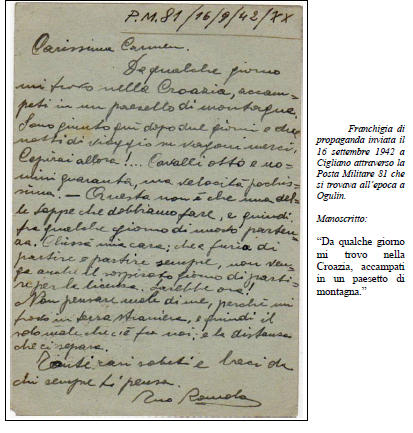 P.M. 81/16/9/42/XX
Carissima Carmen.
Da qualche giorno
mi trovo nella Croazia, accam-
pati in un paesetto di montagna.
Sono giunto qui dopo due giorni e due
notti di viaggio su vagoni merci.
Capirai allora!... Cavalli otto e uo-
mini quaranta, ma velocità pochis-
sima. — Questa non è che una del-
le tappe che dobbiamo fare, e quindi
fra qualche giorno di nuovo parten-
za. Chissà mia cara; che a furia di
partire e partire sempre, non ven-
ga anche il sospirato giorno di parti-
re per la licenza. Sarebbe ora!
Non pensare male di me, perchè mi
trovo in terra straniera, e quindi il
solo male che c'è fra noi; e la distanza
che ci separa.
Tanti cari saluti e baci da
chi sempre ti pensa.
Franchigia di
propaganda inviata il
16 settembre 1942 a
Cigliano attraverso la
Posta Militare 81 che
si trovava all'epoca a
Ogulin.
Manoscritto:
"Da qualche giorno
mi trovo nella
Croazia, accampati
in un paesetto di
montagna."